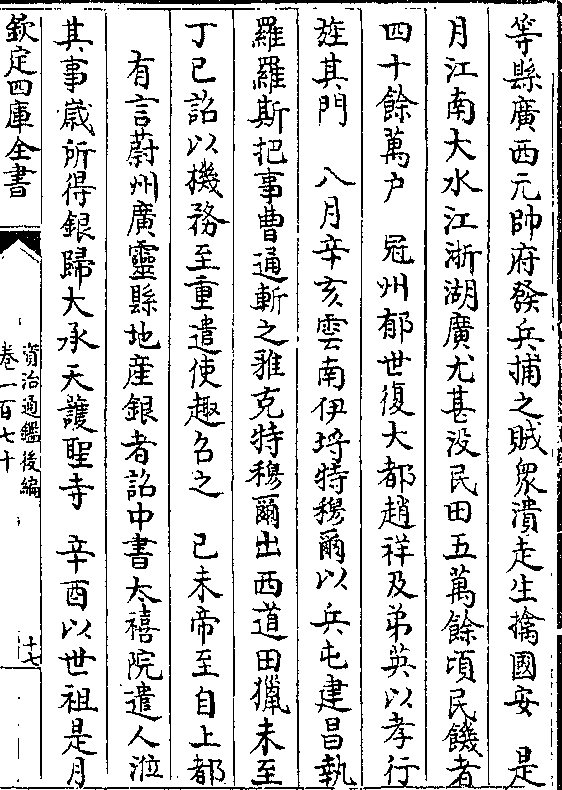 等縣廣西元帥府發兵捕之賊衆潰走生擒國安　是
月江南大水江浙湖廣尤甚没民田五萬餘頃民饑者
四十餘萬户　冠州郁世復大都趙祥及弟英以孝行
旌其門　八月辛亥雲南伊埒特穆爾以兵屯建昌執
羅羅斯把事曹通斬之雅克特穆爾出西道田獵未至
丁已詔以機務至重遣使趣召之　已未帝至自上都
有言蔚州廣靈縣地産銀者詔中書太禧院遣人涖
其事歲所得銀歸大承天護聖寺　辛酉以世祖是月
欽定四庫全書
資治通鑑後編
卷一百七十
十七